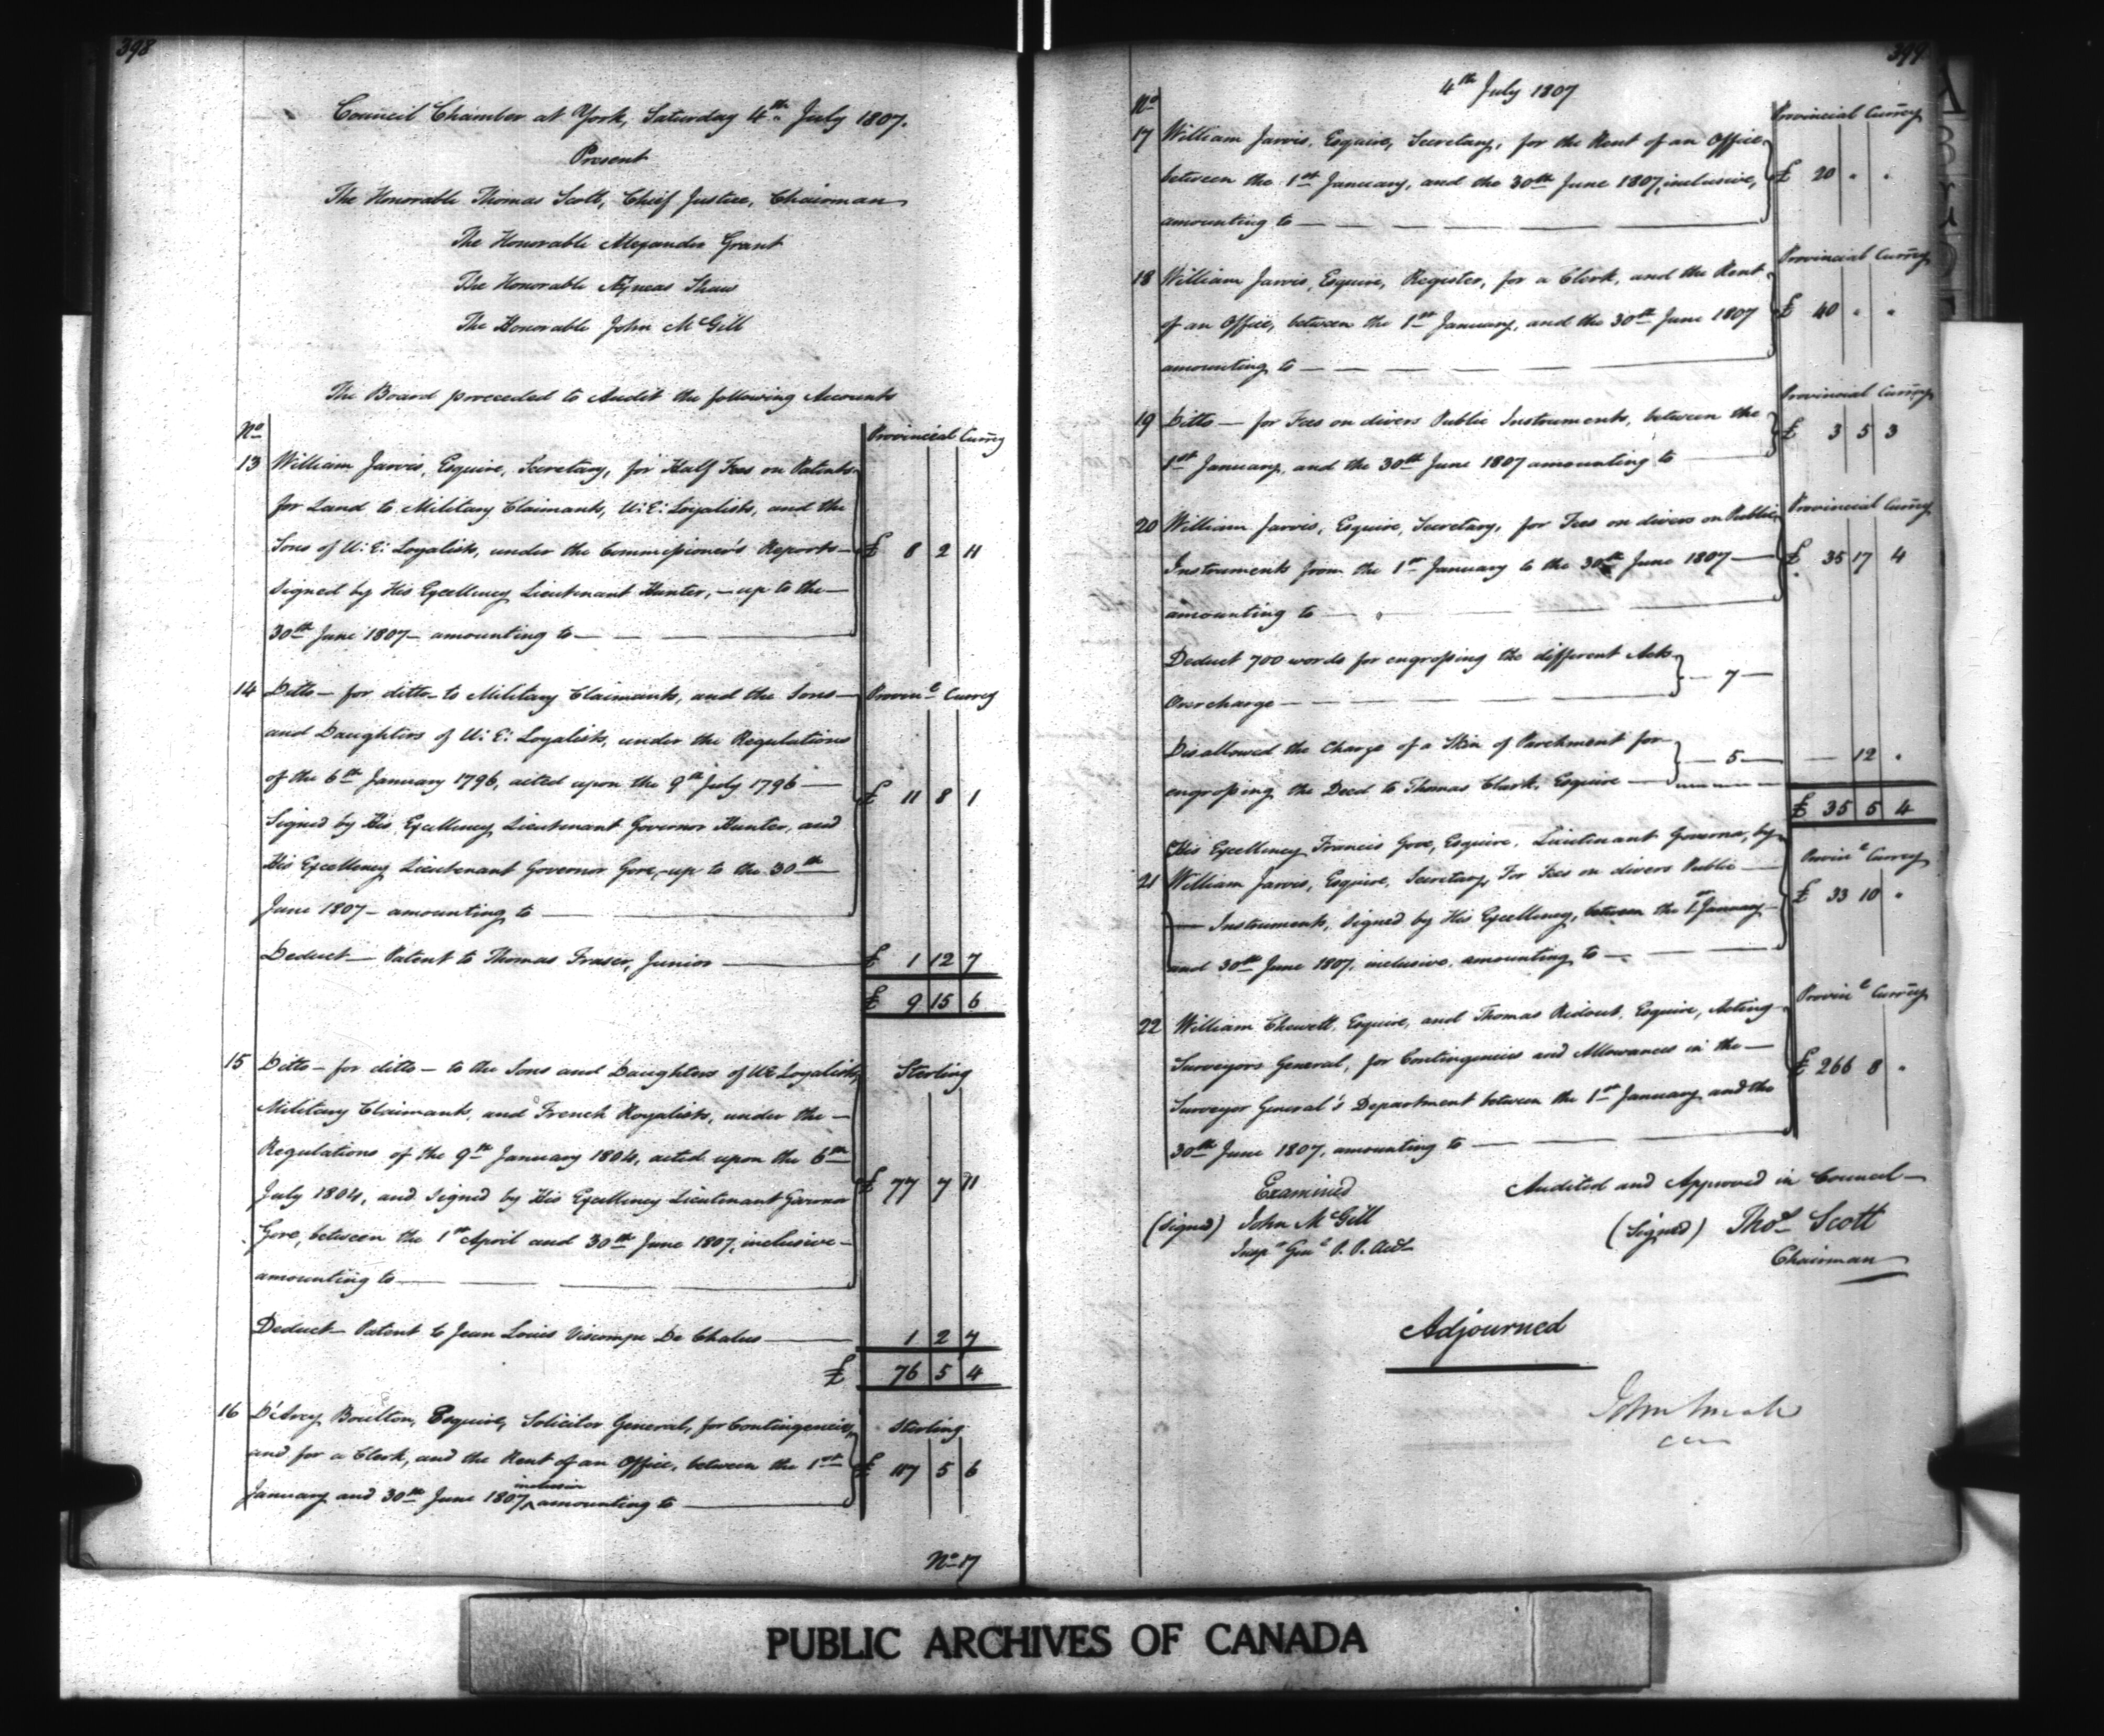 398
Council Chamber at York, Saturday 4th July 1807.
Present
The Honorable Thomas Scott, Chief Justice, Chairman
The Honorable Alexander Grant
The Honorable Æneas Shaw
The Honorable John McGill
The Board proceeded to Audit the following Accounts
No
Provincial Curr̄ey
13 William Jarvis, Esquire, Secretary, for Half Fees on Patents
for Land to Military Claimants, U: E: Loyalists, and the
Sons of U: E: Loyalists, under the Commissioner's Reports — £ 8 2 11
signed by His Excellency Lieutenant Hunter, — up to the —
30th June 1807 — amounting to —
14 Ditto — for ditto — to Military Claimants, and the Sons — Provinl Currey
and Daughters of U: E: Loyalists, under the Regulations
of the 6th January 1796, acted upon the 9th July 1796 — £ 11 8 1
Signed by His Excellency Lieutenant Governor Hunter, and
His Excellency Lieutenant Governor Gore, — up to the 30th
June 1807 — amounting to —
Deduct — Patent to Thomas Fraser, Junior — £ 1 12 7
£ 9 15 6
15 Ditto — for ditto — to the Sons and Daughters of UE Loyalists, Sterling
Military Claimants, and French Royalists, under the —
Regulations of the 9th January 1804, acted upon the 6th
July 1804, and signed by His Excellency Lieutenant Governor £ 77 7 11
Gore, between the 1st April and 30th June 1807, inclusive —
amounting to —
Deduct — Patent to Jean Louis Viscompe De Chalus — 1 2 7
£ 76 5 4
16 D'Arcy Boulton, Esquire, Solicitor General, for Contingencies, Sterling
and for a Clerk, and the Rent of an Office, between the 1st £ 117 5 6
January and 30th June 1807, inclusive amounting to —
No 17
399
4th July 1807
No
Provincial Curr̄ey
17 William Jarvis, Esquire, Secretary, for the Rent of an Office
between the 1st January, and the 30th June 1807, inclusive, £ 20 " "
amounting to —
Provincial Curr̄ey
18 William Jarvis, Esquire, Register, for a Clerk, and the Rent
of an Office, between the 1st January, and the 30th June 1807 £ 40 " "
amounting to —
Provincial Curr̄ey
19 Ditto — for Fees on divers Public Instruments, between the £ 3 5 3
1st January, and the 30th June 1807 amounting to —
Provincial Curr̄ey
20 William Jarvis, Esquire, Secretary, for Fees on divers on Public
Instruments from the 1st January to the 30th June 1807 — £ 35 17 4
amounting to —
Deduct 700 words for engrossing the different Acts
Overcharge — — 7 —
Disallowed the Charge of a Skin of Parchment for
engrossing the Deed to Thomas Clark, Esquire — — 5 — — 12 "
£ 35 5 4
His Excellency Francis Gore, Esquire, Lieutenant Governor, by Provinl Currey
21 William Jarvis, Esquire, Secretary, For Fees on divers Public — £ 33 10 "
— Instruments, signed by His Excellency, between the 1st January
and 30th June 1807, inclusive, amounting to —
Provinl Curr̄ey
22 William Chewett, Esquire, and Thomas Ridout, Esquire, Acting
Surveyors General, for Contingencies and Allowances in the — £ 266 8 "
Surveyor General's Department between the 1st January and the
30th June 1807, amounting to —
Examined
Audited and Approved in Council —
(Signed) John McGill
(Signed) Thos Scott
Inspr Genl P. P. Acts
Chairman
Adjourned
John Small
PUBLIC ARCHIVES OF CANADA